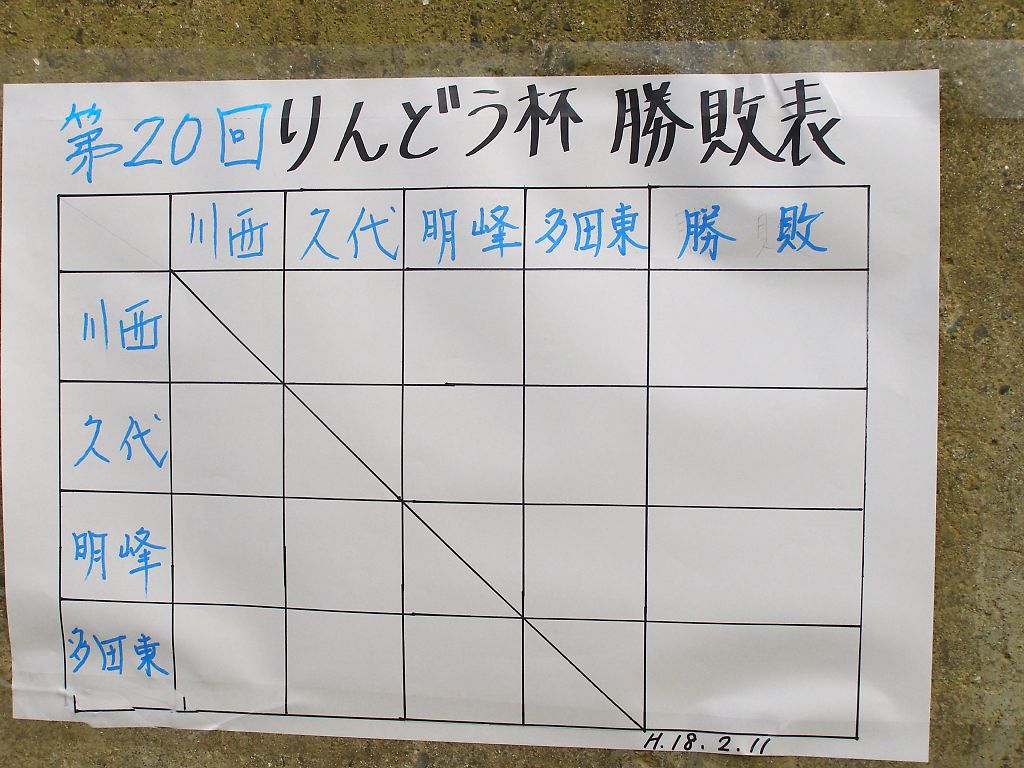 第20回りんどう杯 勝敗表
川西 久代 明峰 多田東 勝 敗
川西
久代
明峰
多田東
H.18.2.11